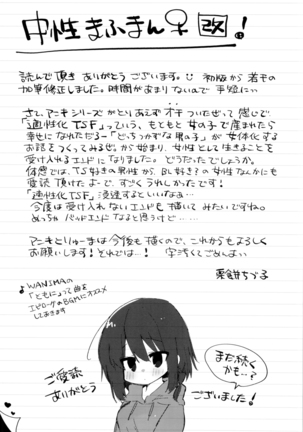 中性まふまん♀改!!
読んで頂きありがとうございます。初版から若干の
加筆修正しました。時間があまりないので手短に…
さて、アニキシリーズがとりあえずオチついたぜって感じで
「適性化TSF」っていう、もともと女の子で産まれたら
幸せになれただろー「どっちつかずな男の子」が女体化する
お話をつくってみるぜ。から始まり、女性として生きることを
受け入れるエンドになりました。どうだったでしょうか。
体感では、TS好きの男性から、BL好き?の女性なんかにも
愛読頂けたよーで、すごくうれしかったです!
「適性化TSF」浸透するといいなぁ…
今度は受け入れないエンドも描いてみたいですね。
めっちゃバッドエンドなると思うけど……
アニキとりゅーまは今後も描くので、これからもよろしく
お願いします!それでは…! 字汚くてごめんよ…
栗餅ちづる
♪WANIMAの
「ともに」って曲を
エピローグのBGMにオススメ
しておきます
ご愛読
ありがとう
ございました!
また続く
かも…?